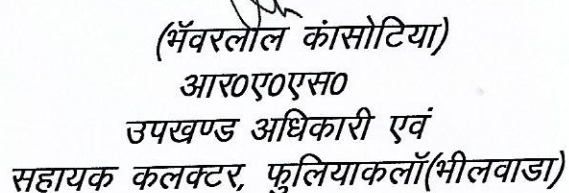 (भॅवरलाल कांसोटिया)
आर०ए०एस०
उपखण्ड अधिकारी एवं
सहायक कलक्टर, फुलियाकलॉ(भीलवाडा)